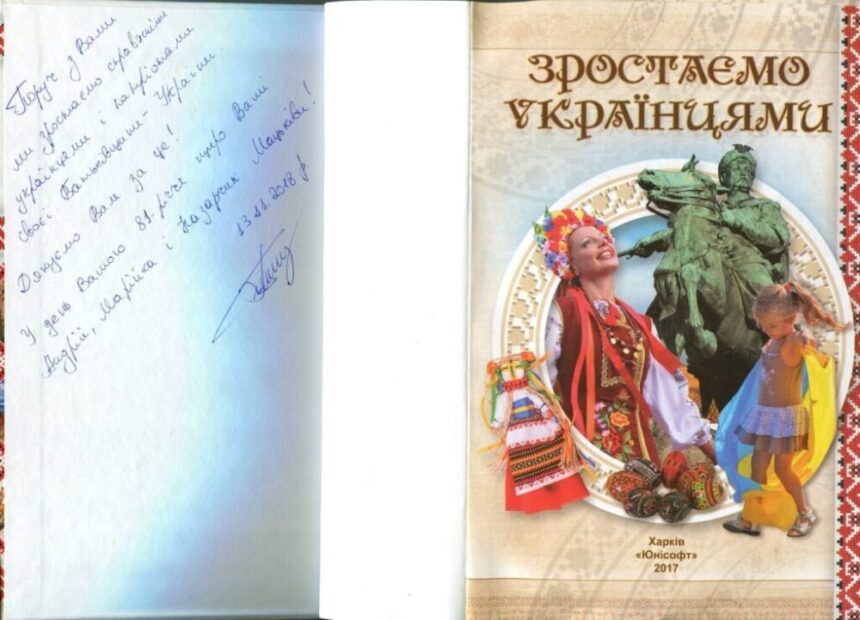 Поруч з Вами
ми зростаємо справжніми
українцями і патріотами
своєї Батьківщини - України.
Дякуємо Вам за це!
У день Вашого 81-річчя щиро Ваші
Андрій, Марійка і Назарчик Мацьківи!
13.11.2018 р
ЗРОСТАЄМО
УКРАЇНЦЯМИ
Харків
«Юнісофт»
2017